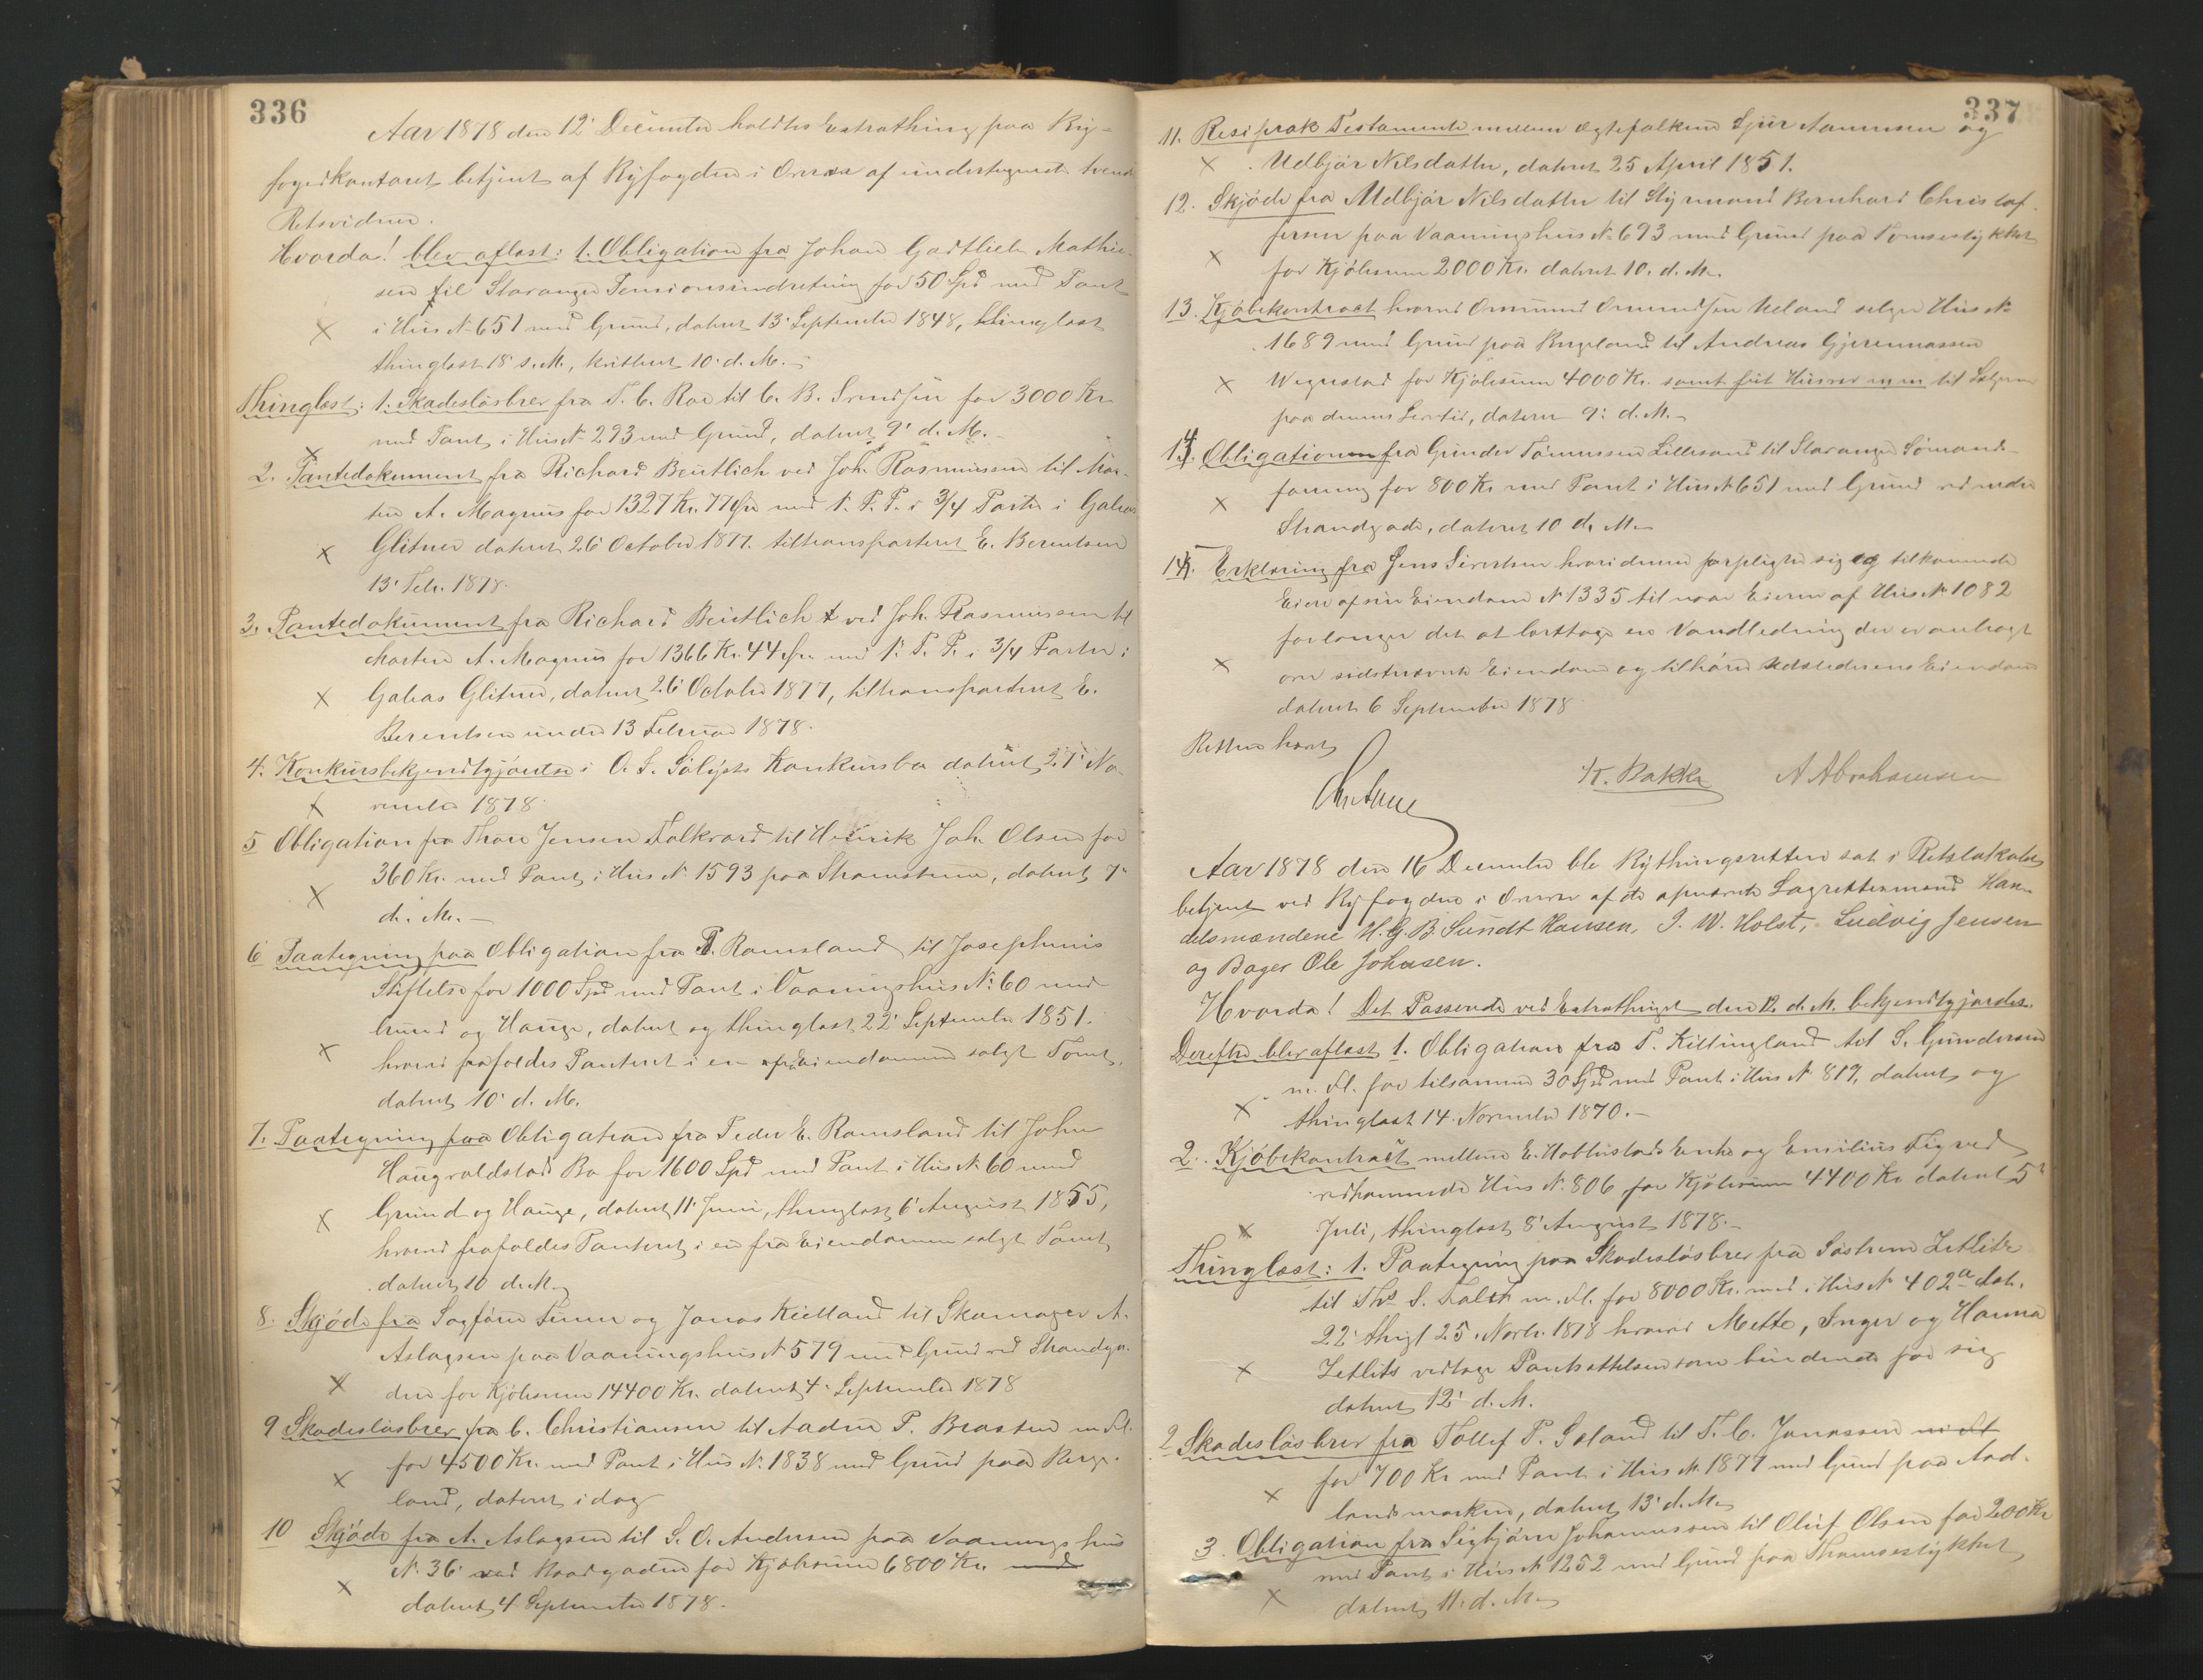 336
Aar 1878 den 12' December holdtes Extrathing paa By-
fogedkontoret betjent af Byfogden i Overvær af undertegnede tvende
Retsvidner.
Hvorda! blev aflæst: 1. Obligation fra Johan Gottlieb Mathie-
sen til Stavanger Pensionsindretning for 50 Spd med Pant
× i Hus No 651 med Grund, dateret 13' September 1848,
thinglæst 18' s. M., kvitteret 10' d. M. -
Thinglæst: 1. Skadesløsbrev fra T. C. Roe til C. B. Svendsen for 3000 Kr
× med Pant i Hus No 293 med Grund, dateret 9' d. M. -
2. Pantedokument fra Richard Beutlich ved Joh. Rasmussen til Mor-
ten A. Magnus for 1327 Kr. 77 Øre med 1. P. P. i 3/4 Parter i Galeas
× Glitner dateret 26' October 1877. tiltransporteret E. Berentsen
13' Febr. 1878.
3. Pantedokument fra Richard Beutlich ved Joh. Rasmussen til
Morten A. Magnus for 1366 Kr. 44 Øre med 1. P. P. i 3/4 Parter i
× Galeas Glitner, dateret 26' October 1877, tiltransporteret E.
Berentsen under 13 Februar 1878.
4. Konkursbekjendtgjørelse i O. S. Sølysts Konkursbo dateret 27' No-
× vember 1878.
5 Obligation fra Thore Jensen Falkvard til Henrik Joh. Olsen for
× 360 Kr. med Pant i Hus No 1593 paa Strømstenen, dateret 7'
d. M. -
6 Paategning paa Obligation fra P. Ramsland til Josephinis
Stiftelse for 1000 Spd med Pant i Vaaningshus No 60 med
Grund og Hauge, dateret og thinglæst 22' September 1851.
× hvorved frafaldes Panteret i en fra Eiendommen solgt Tomt,
dateret 10' d. M.
7. Paategning paa Obligation fra Peder E. Ramsland til John
Haugvaldstads Bo for 1600 Spd med Pant i Hus No 60 med
× Grund og Hauge, dateret 11' Juni, thinglæst 6' August 1855,
hvorved frafaldes Panteret i en fra Eiendommen solgt Tomt
dateret 10 d. M.
8. Skjøde fra Sagfører Finne og Jonas Kielland til Skomager A.
Aslagsen paa Vaaningshus No 579 med Grund ved Strandga-
× den for Kjøbesum 14400 Kr. dateret 4' September 1878
9 Skadesløsbrev fra C. Christiansen til Aadne P. Braaten m. Fl.
× for 4500 Kr. med Pant i Hus No. 1838 med Grund paa Berge-
land, dateret idag
10 Skjøde fra A. Aslagsen til S. O. Andersen paa Vaaningshus
No. 36 ved gaden for Kjøbesum 6800 Kr. med
× dateret 4 September 1878.
337
11. Resiprok Testamente mellem Ægtefolkene Sjur Aanensen og
× Udbjør Nilsdatter, dateret 25 April 1851.
12. Skjøde fra Udbjør Nilsdatter til Styrmand Bernhard Christof-
fersen paa Vaaningshus No 693 med Grund paa Tomsestykket
× for Kjøbesum 2000 Kr. dateret 10. d. M.
13. Kjøbekontract hvorved Ommund Ommundsen Ueland selger Hus No
1689 med Grund paa Bergeland til Andreas Gjeremiassen
× Wegnestad for Kjøbesum 4000 Kr. samt frit Husrum til Selgeren
paa dennes Levetid, dateret 9' d. M.
14. Obligation fra Gunder Tønnessen Lillesand til Stavanger Sømands-
× forening for 800 Kr med Pant i Hus No 651 med Grund ved nedre
Strandgade, dateret 10 d. M.
15. Erklæring fra Jens Sivertsen hvori denne forpligter sig og tilkommende
Eiere af sin Eiendom No 1335 til naar Eieren af Hus No 1082
forlanger det at borttage en Vandledning der er anbragt
× over sidstnævnte Eiendom og tilhører Udstederens Eiendom
dateret 6 September 1878
Retten hævet
K. Bakke A Abrahamsen
Aar 1878 den 16 December ble Bythingsretten sat i Retslokalet
betjent ved Byfogden i Overvær af de opnævnte Lagrettesmænd Han-
delsmændene H. G. B. Sundt Hansen, I. W. Holst, Ludvig Jensen
og Bager Ole Johnsen.
Hvorda! Det Passerede ved Extrathinget den 12. d. M. bekjendtgjordes.
Derefter blev aflæst 1. Obligation fra T. Killingland til S. Gundersen
m. Fl. for tilsammen 30 Spd med Pant i Hus No 819, dateret og
× thinglæst 14. November 1870. -
2. Kjøbekontract mellem E. Enke og Emilius Figved
vedkommende Hus No. 806 for Kjøbesum 4400 Kr dateret 5'
× Juli, thinglæst 8' August 1878. -
Thinglæst: 1. Paategning paa Skadesløsbrev fra Søstrene Zetlitz
til Ths S. Falck m. Fl. for 8000 Kr. med i Hus No 402a dat.
22' thlgt 25. Novbr. 1878 hvorved Mette, Inger og Hanna
× Zetlitz vedtage Pantsættelsen som bindende for sig
dateret 12' d. M.
2 Skadesløsbrev fra Tollef P. Soland til T. C. Jonassen m. Fl
× for 700 Kr med Pant i Hus No. 1877 med Grund paa Aad-
landsmarken, dateret 13' d. M.
3 Obligation fra Sigbjørn Johannessen til Oluf Olsen for 200 Kr
med Pant i Hus No 1252 med Grund paa Thomsestykket
× dateret 11. d. M.